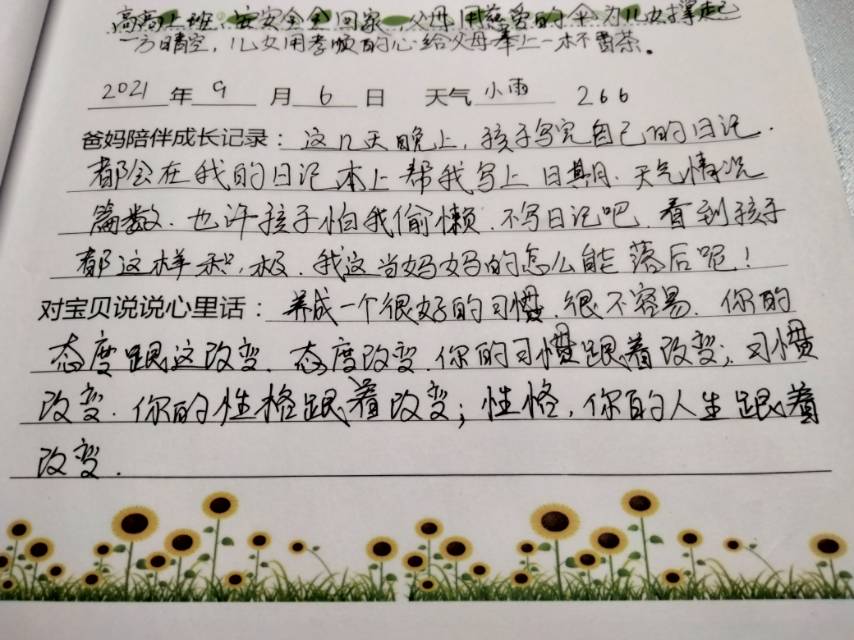 高高兴兴上班，安安全全回家，父母用慈爱的伞为儿女撑起
一方晴空，儿女用孝顺的心给父母奉上一杯香茶。
2021 年 9 月 6 日 天气 小雨 266
爸妈陪伴成长记录：这几天晚上，孩子写完自己的日记.
都会在我的日记本上帮我写上日期.天气情况
篇数.也许孩子怕我偷懒.不写日记吧.看到孩子
都这样积极.我这当妈妈的怎么能落后呢！
对宝贝说说心里话：养成一个很好的习惯.很不容易.你的
态度跟这改变.态度改变.你的习惯跟着改变；习惯
改变.你的性格跟着改变；性格，你的人生跟着
改变.